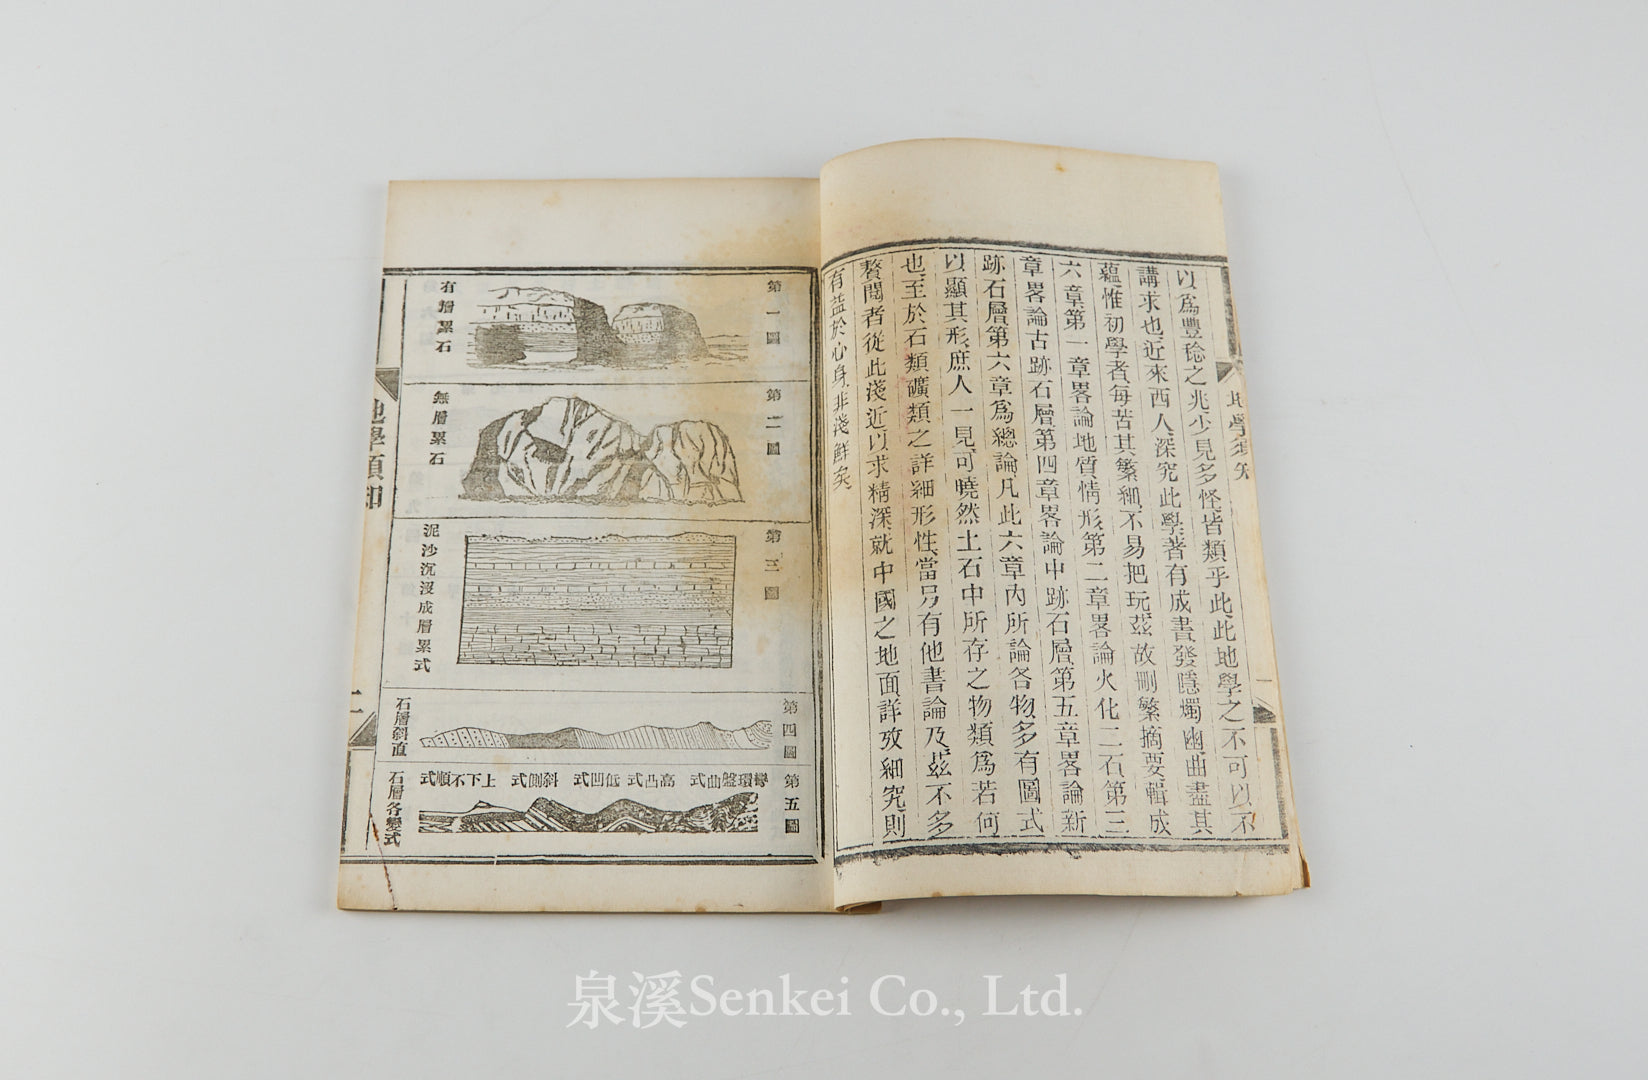 以爲豐稔之兆少見多怪皆類乎此此地學之不可以不
講求也近來西人深究此學著有成書發隱燭幽曲盡其
蘊惟初學者每苦其繁細不易把玩茲故刪繁摘要輯成
六章第一章畧論地質情形第二章畧論火化二石第三
章畧論古跡石層第四章畧論中跡石層第五章畧論新
跡石層第六章爲總論凡此六章內所論各物多有圖式
以顯其形庶人一見可曉然土石中所存之物類爲若何
也至於石類礦類之詳細形性當另有他書論及茲不多
贅閱者從此淺近以求精深就中國之地面詳攷細究則
有益於心身非淺鮮矣
地學須知
一
第一圖
有層累石
第二圖
無層累石
第三圖
泥沙沉沒成層累式
第四圖
石層斜直
第五圖
彎環盤曲式
高凸式
低凹式
斜側式
上下不順式
石層各變式
地學須知
二
泉溪Senkei Co., Ltd.